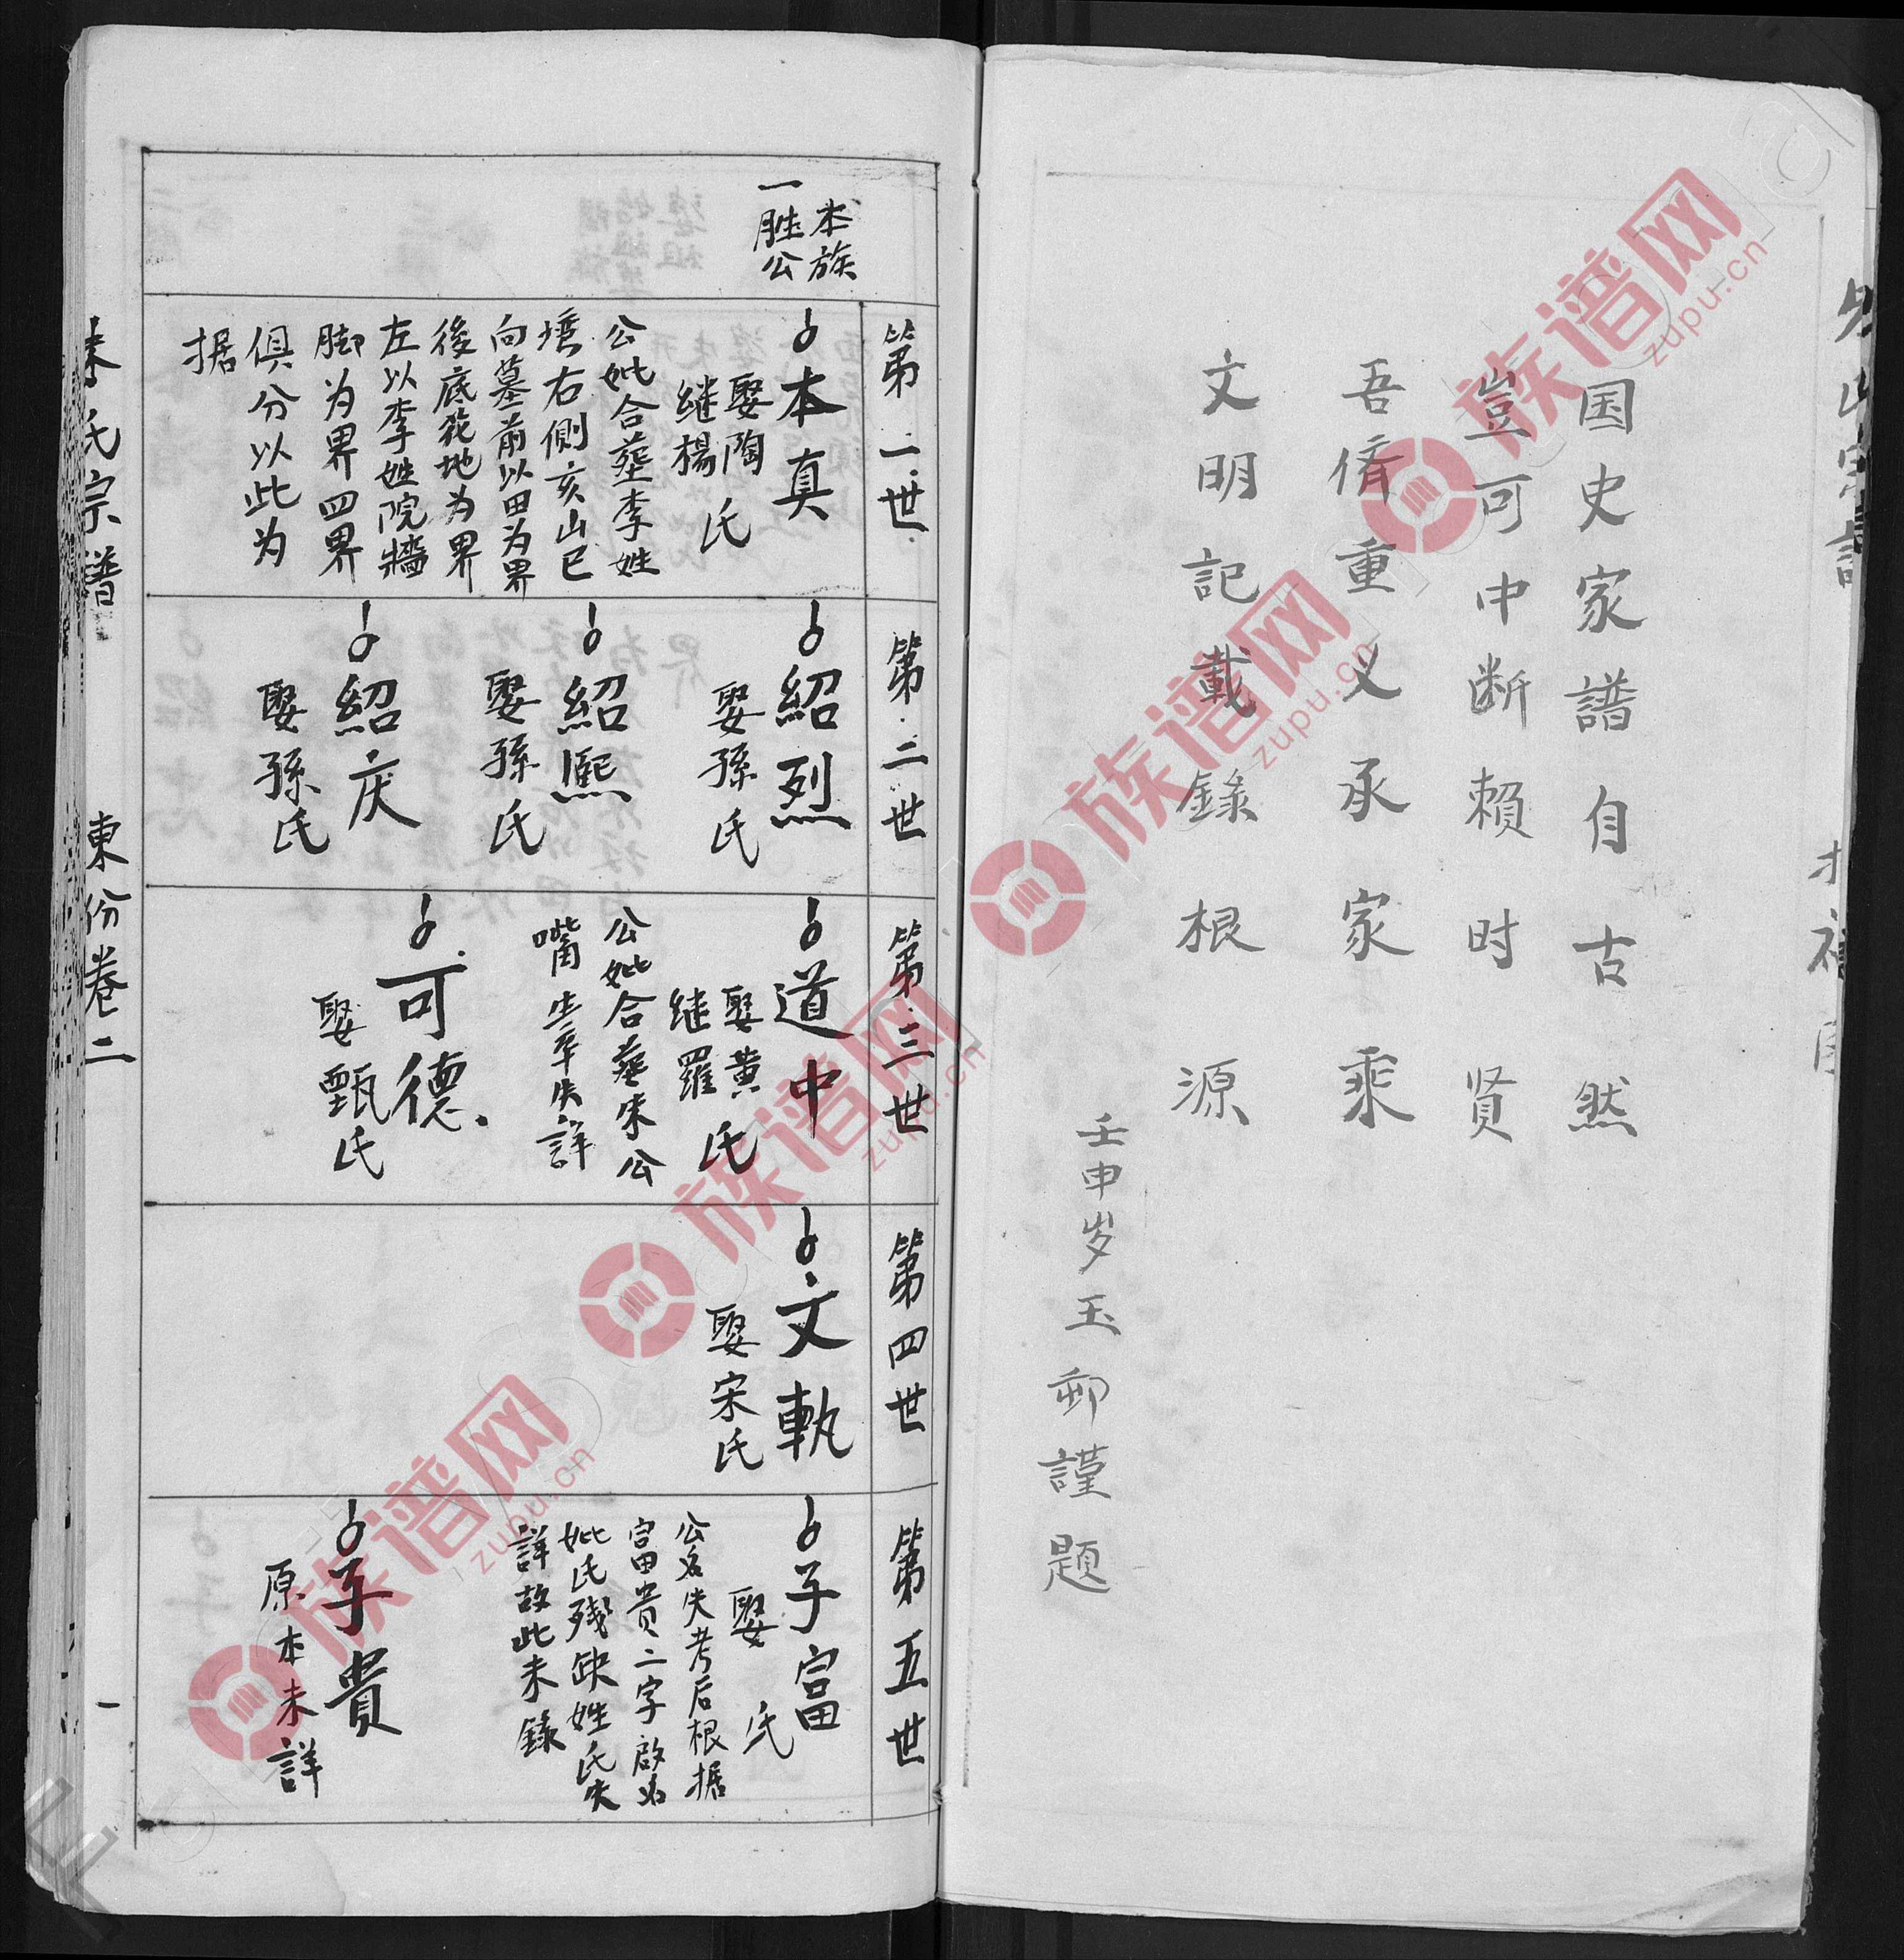 国史家譜自古然
豈可中断賴时贤
吾儕重义承家乘
文明記載錄根源
壬申岁玉卯謹題
本族
一胜公
第一世
本真
娶陶氏
继楊
公妣合塟李姓
塆右側亥山巳
向墓前以田为界
後底菀地为界
左以李姓院牆
脚为界四界
俱分以此为
据
第二世
紹烈
娶孫氏
紹熈
娶孫氏
紹庆
娶孫氏
第三世
道中
娶黄氏
继羅
公妣合塟朱公
嘴生卒失詳
可德
娶甄氏
第四世
文軌
娶宋氏
第五世
子富
娶 氏
公名失考后根据
富貴二字啟名
妣氏残缺姓氏失
詳故此未錄
子貴
原本未詳
氏宗譜
東份卷二
一
族谱网
zupu.cn
族谱网
zupu.cn
族谱网
zupu.cn
族谱网
zupu.cn